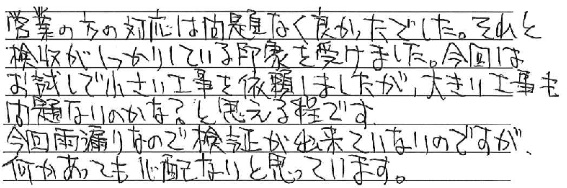 営業の方の対応は問題なく良かったでした。それと
検収がしっかりしている印象を受けました。今回は
お試しで小さい工事を依頼しましたが、大きい工事も
問題ないのかな?と思える程です
今回雨漏りなので検証が出来ていないのですが、
何かあっても心配ないと思っています。